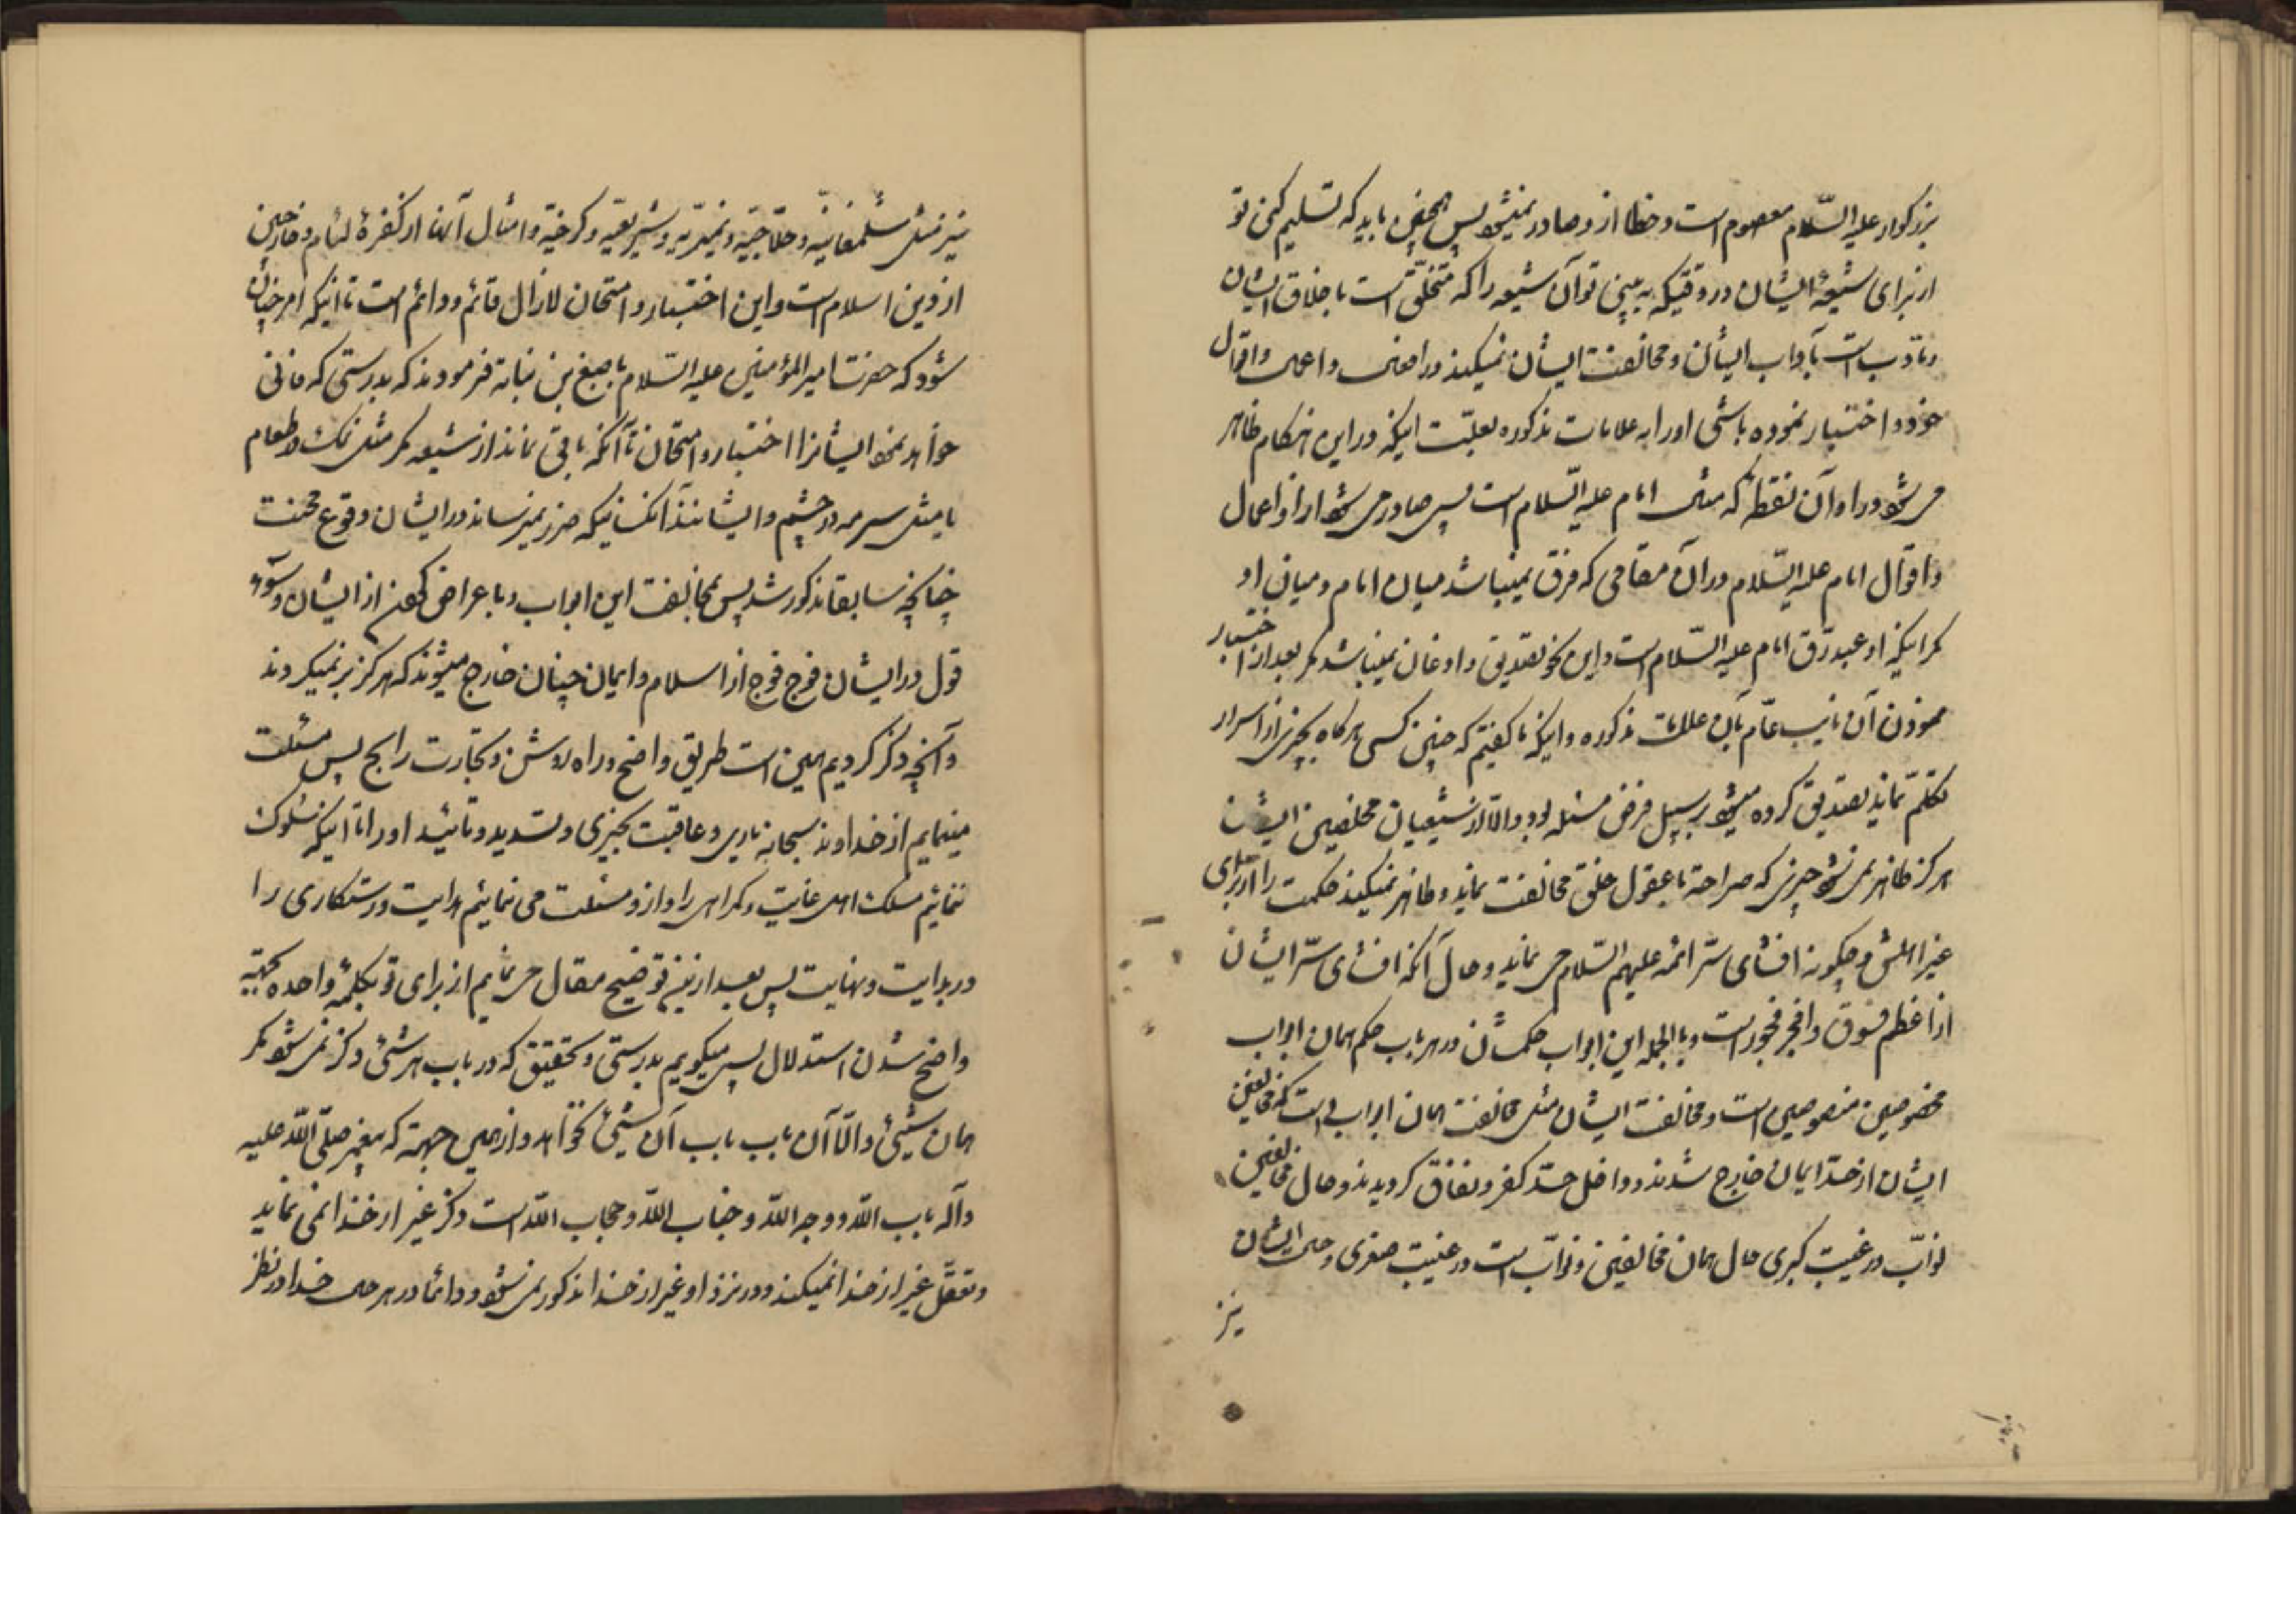 بزرکوار علیه السّلام معصوم است و خطا از او صادر نمیشود پس همچنین باید که تسلیم کنی تو
از برای شیعهٔ ایشان در وقتیکه به بینی تو آن شیعه را که متخلّق است باخلاق ایشان
و مأدّب است بآداب ایشان و مخالفت ایشان نمیکند در افعال و اعمال و اقوال
خود و اختبار نموده باشی او را به علامات مذکوره بعلّت اینکه در این هنکام ظاهر
می شود در او آن نقطهٔ که مثال امام علیه السّلام است پس صادر می شود از او اعمال
و اقوال امام علیه السّلام در آن مقامی که فرق نمیباشد میان امام و میان او
مکر اینکه او عبد رقّ امام علیه السّلام است و این نحو تصدیق و اذعان نمیباشد مکر بعد از اختبار
نمودن آن نایب عامّ بآن علامات مذکوره و اینکه ما کفتیم که چنین کسی هرکاه بچیزی از اسرار
تکلّم نماید تصدیق کرده میشود بر سبیل فرض مسئله بود و الّا از شیعیان مخلصین ایشان
هرکز ظاهر نمی شود چیزی که صراحة با عقول خلق مخالفت نماید و ظاهر نمیکند حکمت را از برای
غیر اهلش و چکونه افشای سرّ ائمه علیهم السّلام می نماید و حال آنکه افشای سرّ ایشان
از اعظم فسوق و افجر فجور است و بالجمله این ابواب حکمشان در هر باب حکم همان ابواب
مخصوصین منصوصین است و مخالفت ایشان مثل مخالفت همان ابواب است که مخالفین
ایشان از حدّ ایمان خارج شدند و داخل حدّ کفر و نفاق کردیدند و حال مخالفین
نوّاب در غیبت کبری حال همان مخالفین نوّاب است در غیبت صغری و حال ایشان
نیز
نیز مثل شلمغانیّه و حلّاجیّه و نمیریّه و شریعیّه و کرخیّه و امثال آنها از کفرهٔ لئام و خارجین
از دین اسلام است و این اختبار و امتحان لازال قائم و دائم است تا اینکه امر چنان
شود که حضرت امیر المؤمنین علیه السّلام باصبغ بن نباته فرمودند که بدرستی که فانی
خواهد نمود ایشانرا اختبار و امتحان تا آنکه باقی نماند از شیعه مکر مثل نمک در طعام
یا مثل سرمه در چشم و ایشانند آنکسانیکه ضرر نمیرساند در ایشان وقوع محنت
چنانچه سابقا مذکور شد پس بمخالفت این ابواب و باعراض کردن از ایشان و سوء
قول در ایشان فوج فوج از اسلام و ایمان چنان خارج میشوند که هرکز بر نمیکردند
و آنچه ذکر کردیم همین است طریق واضح و راه روشن و تجارت رابح پس مسئلت
مینمایم از خداوند سبحانه یاری و عاقبت بخیری و تسدید و تأئید او را تا اینکه سلوک
ننمائیم مسلک اهل غایت و کمراهی را و از او مسئلت می نمائیم هدایت و رستکاری را
در بدایت و نهایت پس بعد از نیز توضیح مقال می نمایم از برای تو بکلمهٔ واحده بجهة
واضح شدن استدلال پس میکویم بدرستی و تحقیق که در باب هر شئ ذکر نمی شود مکر
همان شیئ و الّا آن باب باب آن شیئ نخواهد و از همین جهة که پیغمبر صلّی اللّه علیه
و آله باب اللّه و وجه اللّه و جناب اللّه و حجاب اللّه است ذکر غیر از خدا نمی نماید
و تعقّل غیر از خدا نمیکند و در نزد او غیر از خدا مذکور نمی شود و دائما در هر حال خدا در نظر